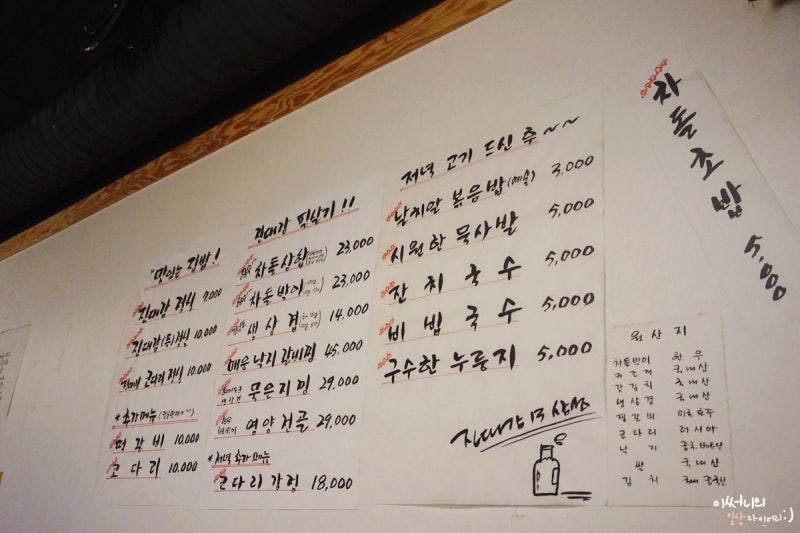 "맛있는 집밥!
진대감 정식 7,000
진대감(특)정식 10,000
진대감 코다리 정식 10,000
*추가메뉴
떡갈비 10,000
코다리 10,000
진대감 필살기!!
차돌삼합 23,000
차돌박이 23,000
생삼겹 14,000
매운 낙지 갈비찜 45,000
묵은지찜 29,000
영양전골 29,000
*저녁 추가메뉴
코다리강정 18,000
저녁 고기 드신 후~~
날치알 볶음밥(예술) 3,000
시원한 묵사발 5,000
잔치국수 5,000
비빔국수 5,000
구수한 누룽지 5,000
진대감
차돌초밥 5,000
원산지
차돌박이 한우
국내산
갓김치 국내산
생삼겹 국내산
찜갈비
코다리 러시아
낙지
쌀 국내산
김치
이써니의
일상다이어리:)